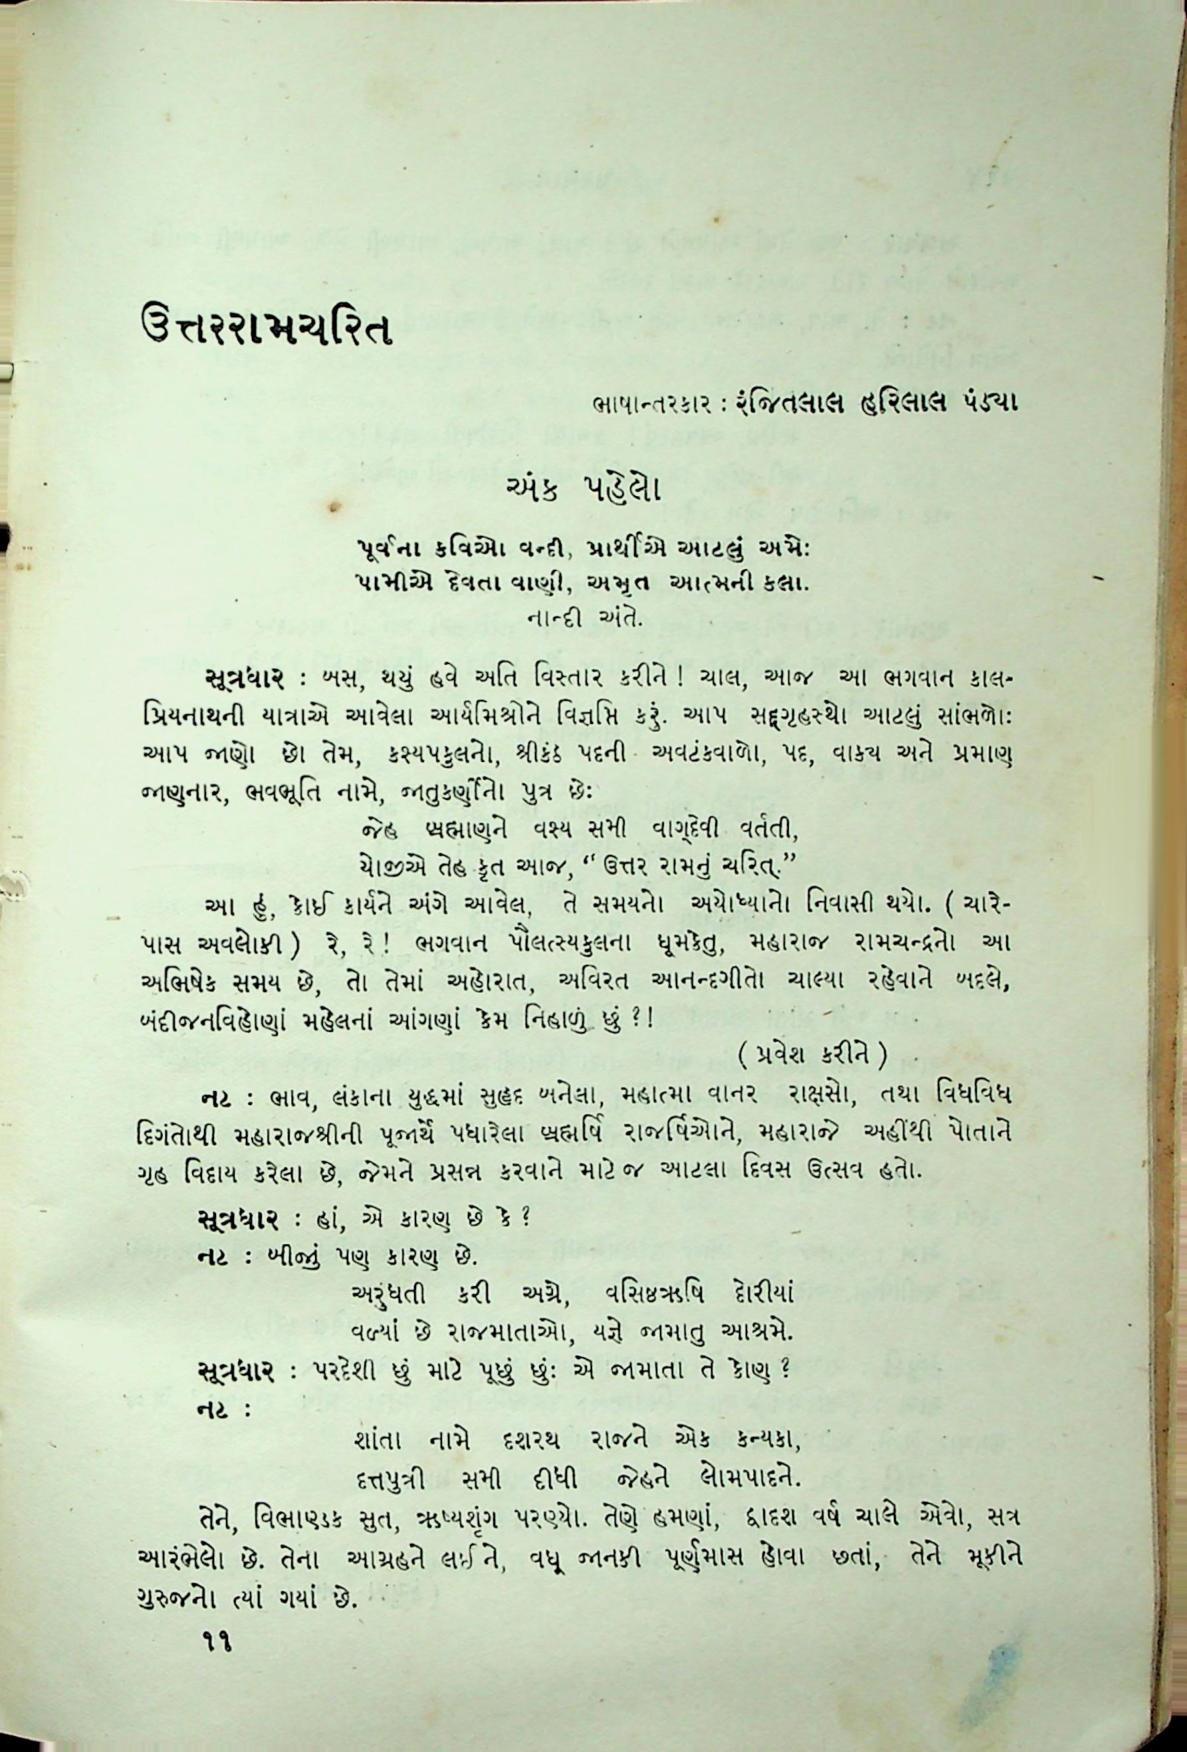 ઉત્તરરામચરિત
ભાષાન્તરકાર : રંજિતલાલ હરિલાલ પંડ્યા
અંક પહેલો
પૂર્વના કવિઓ વન્દી, પ્રાર્થીએ આટલું અમેઃ
પામીએ દેવતા વાણી, અમૃત આત્મની કલા.
નાન્દી અંતે.
સૂત્રધાર : બસ, થયું હવે અતિ વિસ્તાર કરીને! ચાલ, આજ આ ભગવાન કાલ-
પ્રિયનાથની યાત્રાએ આવેલા આર્યમિશ્રોને વિજ્ઞપ્તિ કરું. આપ સદ્ગૃહસ્થો આટલું સાંભળોઃ
આપ જાણો છો તેમ, કશ્યપકુલનો, શ્રીકંઠ પદની અવટંકવાળો, પદ, વાક્ય અને પ્રમાણ
જાણનાર, ભવભૂતિ નામે, જાતુકર્ણીનો પુત્ર છેઃ
જેહ બ્રહ્માણને વશ્ય સમી વાગ્દેવી વર્તતી,
યોજીએ તેહ કૃત આજ, “ઉત્તર રામનું ચરિત્.”
આ હું, કોઈ કાર્યને અંગે આવેલ, તે સમયનો અયોધ્યાનો નિવાસી થયો. ( ચારે-
પાસ અવલોકી ) રે, રે! ભગવાન પૌલત્સ્યકુલના ધૂમકેતુ, મહારાજ રામચન્દ્રનો આ
અભિષેક સમય છે, તો તેમાં અહોરાત, અવિરત આનન્દગીતો ચાલ્યા રહેવાને બદલે,
બંદીજનવિહોણાં મહેલનાં આંગણાં કેમ નિહાળું છું?!
( પ્રવેશ કરીને )
નટ : ભાવ, લંકાના યુદ્ધમાં સુહૃદ બનેલા, મહાત્મા વાનર રાક્ષસો, તથા વિધવિધ
દિગંતોથી મહારાજશ્રીની પૂજાર્થે પધારેલા બ્રહ્મર્ષિ રાજર્ષિઓને, મહારાજે અહીંથી પોતાને
ગૃહ વિદાય કરેલા છે, જેમને પ્રસન્ન કરવાને માટે જ આટલા દિવસ ઉત્સવ હતો.
સૂત્રધાર : હાં, એ કારણ છે કે?
નટ : બીજું પણ કારણ છે.
અરુંધતી કરી અગ્રે, વસિષ્ઠઋષિ દોરીયાં
વળ્યાં છે રાજમાતાઓ, યજ્ઞે જામાતુ આશ્રમે.
સૂત્રધાર : પરદેશી છું માટે પૂછું છુંઃ એ જામાતા તે કોણ?
નટ :
શાંતા નામે દશરથ રાજને એક કન્યકા,
દત્તપુત્રી સમી દીધી જેહને લોમપાદને.
તેને, વિભાણ્ડક સુત, ઋષ્યશૃંગ પરણ્યો. તેણે હમણાં, દ્વાદશ વર્ષ ચાલે એવો, સત્ર
આરંભેલો છે. તેના આગ્રહને લઈ ને, વધૂ જાનકી પૂર્ણમાસ હોવા છતાં, તેને મૂકીને
ગુરુજનો ત્યાં ગયાં છે.
૧૧